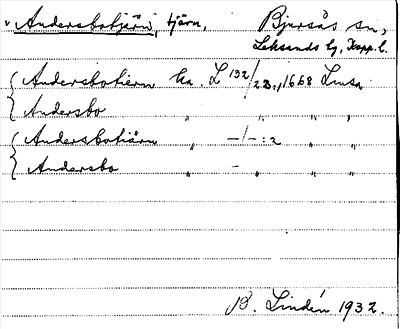 v Andersbotjärn, tjärn, Bjursås sn,
Leksands tg, Kopp. l.
Andersbotiern ka. L 132/23:1 1668 Linsn
Andersbo " " " "
Andersbotiärn " –/–:2 " "
Andersbo " – " " "
B. Lindén 1932.